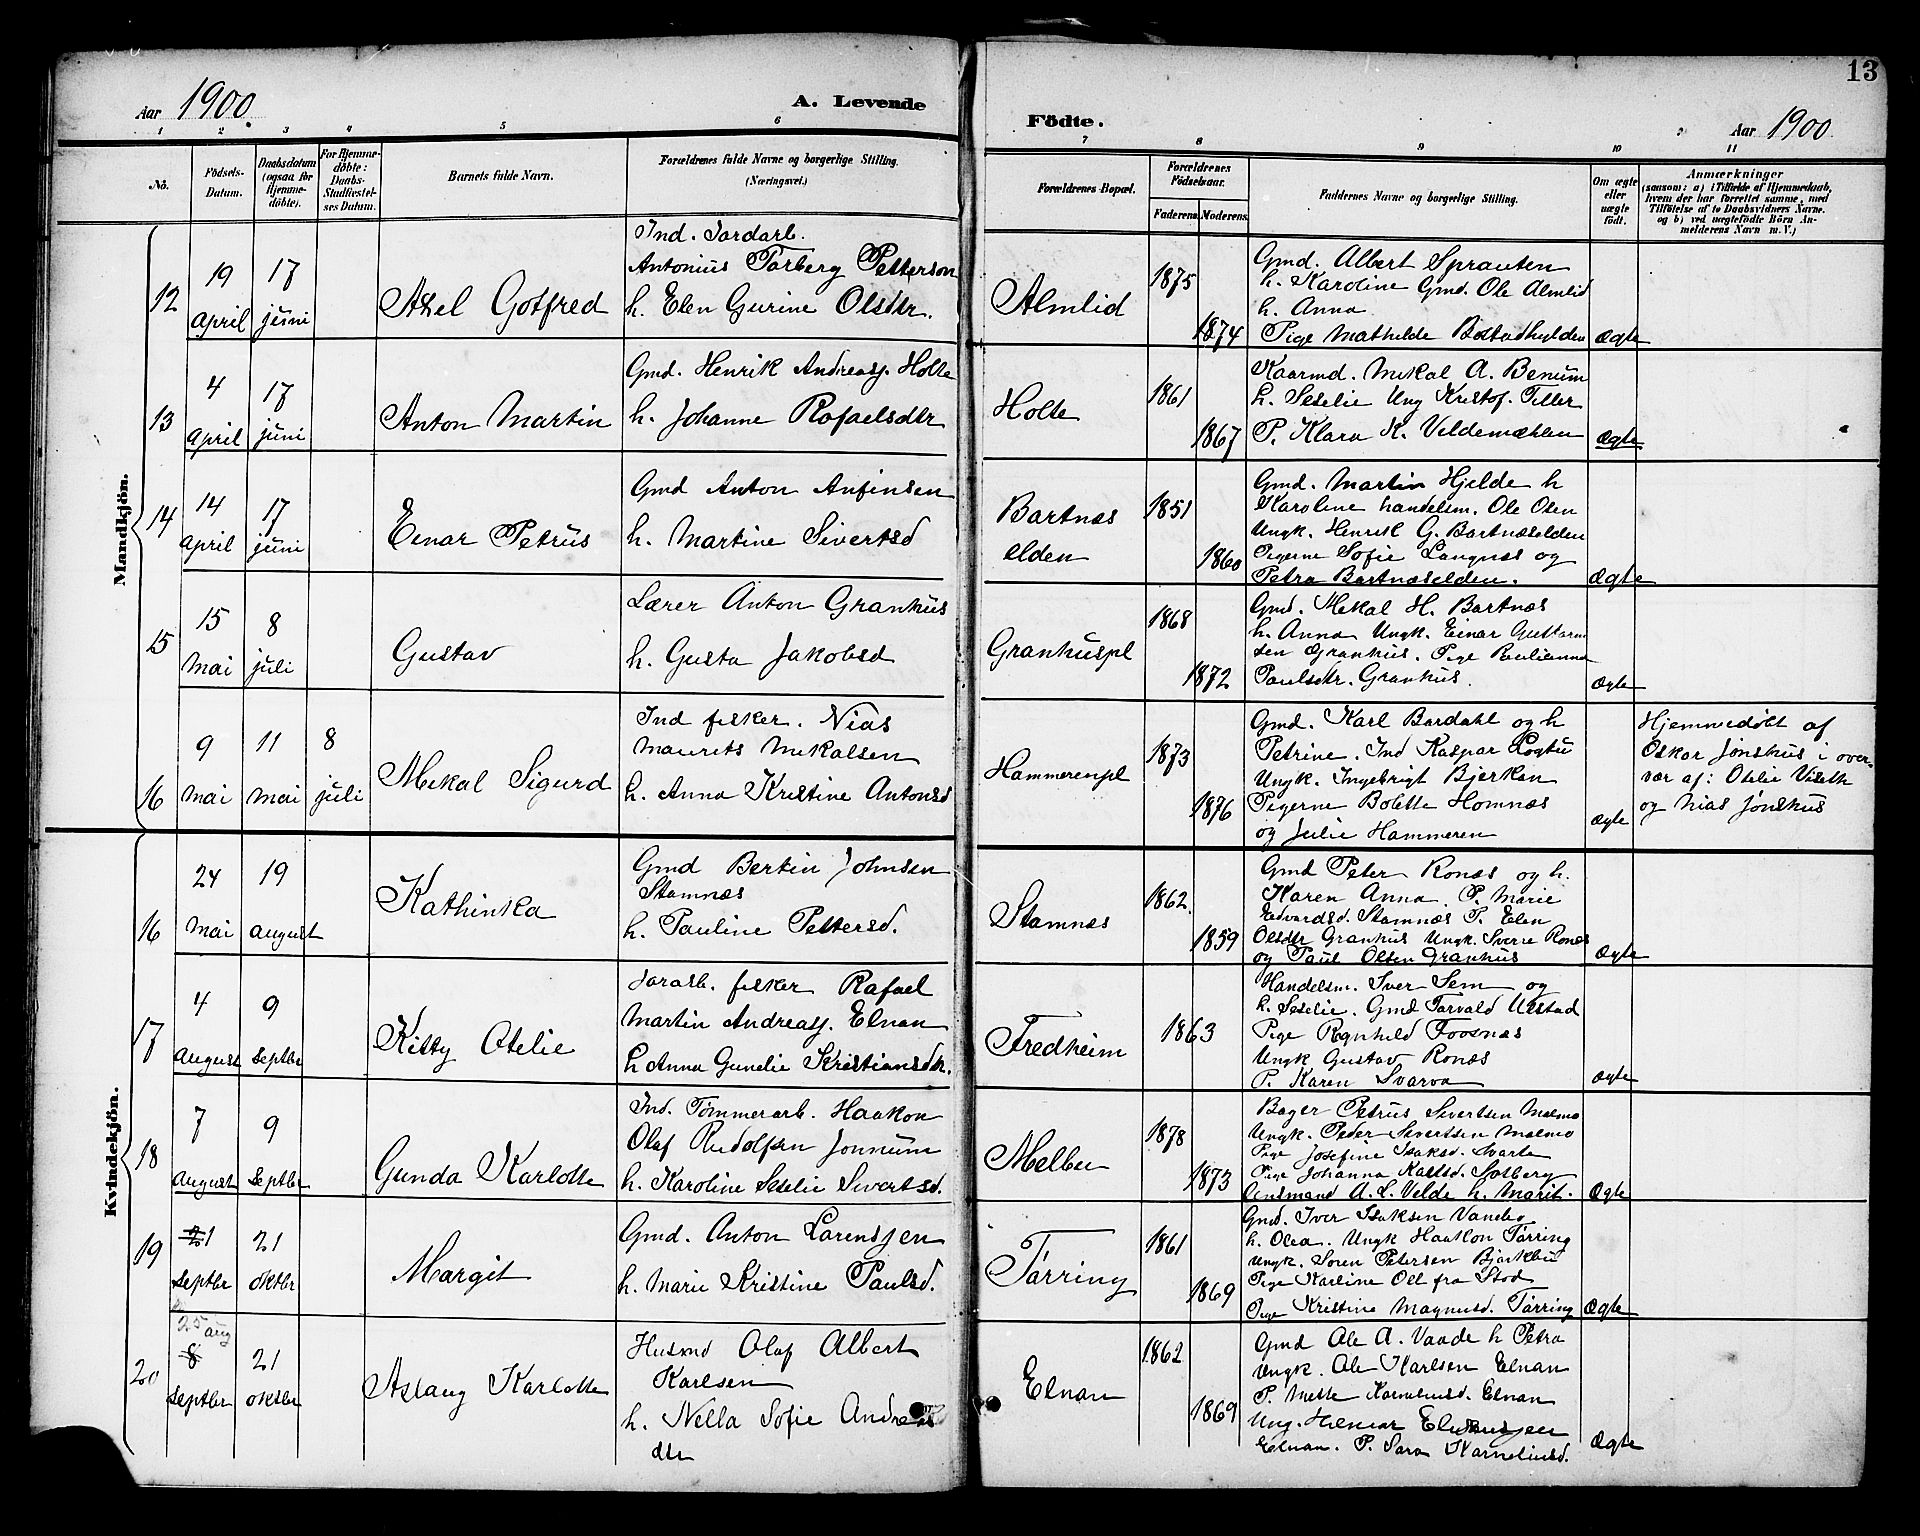 13
Aar 1900.
A. Levende
Födte.
Aar 1900.
1 2 3 4 5 6 7 8 9 10 11
No.
Födsels-Datum.
Daabsdatum (ogsaa for Hjemmedöbte).
For Hjemmedöbte: Daabs-Stadfæstelses Datum.
Barnets fulde Navn.
Forældrenes fulde Navne og borgerlige Stilling. (Næringsvei.)
Forældrenes Bopæl.
Forældrenes Födselsaar.
Faderens. Moderens.
Faddernes Navne og borgerlige Stilling.
Om ægte eller uægte födt.
Anmærkninger
(saasom: a) i Tilfælde af Hjemmedaab,
hvem der har forrettet samme, med
Tilföielse af to Daabsvidners Navne.
og b) ved uægtefödte Börn An-
melderens Navn m. V.)
Mandkjön.
12
19 april
17 juni
Axel Gotfred
Ind. Jordarb.
Antonius Torberg Petterson
h. Elen Gurine Olsdtr.
Almlid
1875
1874
Gmd. Albert Sprauten
h. Karoline Gmd. Ole Almlid
h. Anna
Pige Mathilde Bostadhylden
Ægte
13
4 april
17 juni
Anton Martin
Gmd. Henrik Andreasj. Holte
h. Johanne Rafaelsdtr
Holte
1861
1867
Kaarmd. Mikal A. Benum
h. Seselie Ung Kristof. Tiller
P. Klara K. Veldemælen
Ægte
14
14 april
17 juni
Einar Petrus
Gmd Anton Anfinsen
h. Martine Sivertsd
Bartnæs
elden
1851
1860
Gmd. Martin Hjelde h
Karoline handelsm. Ole Olsen
Ungk. Henrik G. Bartnæselden
Pigerne Sofie Langnæs og
Petra Bartnæselden.
Ægte
15
15 mai
8 juli
Gustav
Lærer Anton Granhus
h. Gusta Jakobsd
Granhuspl
1868
1872
Gmd. Mekal H. Bartnæs
h. Anna Ungk. Einar Guttorm
sen Granhus. Pige Paulianna
Paulsdtr. Granhus.
Ægte
16
9 mai
11 mai
8 juli
Mekal Sigurd
Ind fisker. Nias
Maurits Mikalsen
h. Anna Kristine Antonsd
Hammerenpl
1873
1876
Gmd. Karl Bardahl og h
Petrine. Ind Kaspar Logtu
Ungk. Ingebrigt Bjerken
Pigerne Bolette Homnæs
og Julie Hammeren
Ægte
Hjemmedøbt af
Oskar Jønshus i over-
vær af: Otelie Viseth
og Nias Jønshus
Kvindekjön.
16
24 mai
19 august
Kathinka
Gmd Bertin Johnsen
Stamnæs
h. Pauline Pettersd.
Stamnæs
1862
1859
Gmd Peter Ronæs og h.
Karen Anna. P. Marie
Edvardsd. Stamnæs P. Elen
Olsdtr Granhus Ungk. Sverre Ronæs
og Paul Olsen Granhus
Ægte
17
4 august
9 septbr
Kitty Otelie
Jorarb. fisker Rafael
Martin Andreasj. Elnan
h Anna Gunelie Kristiansdtr.
Fredheim
1863
Handelsm. Iver Sem og
h. Seselie. Gmd Torvald Ulstad
Pige Ragnhild Foosnæs
Ungk Gustav Ronæs
P. Karen Svarva
Ægte
18
7 august
9 septbr
Gunda Karlotte
Ind. Tømmerarb. Haakon
Olaf Rudolfsen Jonnum
h. Karoline Seselie Sivertsd.
Melbu
1878
1873
Bager Petrus Sivertsen Malmo
Ungk. Peder Sivertsen Malmo
Pige Josefine Isaksd. Svarte
Pige Johanna Kalsd. Solberg
Lensmand A. L. Velde h. Marit.
Ægte
19
21 septbr
21 oktbr
Margit
Gmd. Anton Lorensjen
h. Marie Kristine Paulsd.
Tørring
1861
1869
Gmd. Iver Isaksen Vandbo
h. Olea. Ungk Haakon Tørring
Ungk. Soren Petersen Bjørkbu
Pige Karline Oll fra Stod
Pige Kristine Magnusd. Tørring
Ægte
20
25 aug
8 septbr
21 oktbr
Aslaug Karlotte
Husmd Olaf Albert
Karlsen
h. Nella Sofie Andreas
dtr
Elnan
1862
1869
Gmd Ole A. Vaade h Petra
Ungk. Ole Karlsen Elnan
P. Mette Korneliusd. Elnan
Ung. Hilmar
Elnan. P. Sara Korneliusd.
Ægte